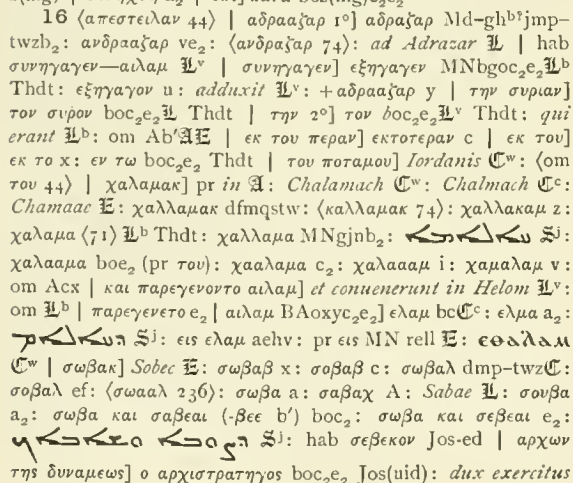 16 ⟨απεστειλαν 44⟩ | αδρααζαρ 1°] αδραζαρ Md-gh^b?jmp-
twzb₂: ανδρααζαρ ve₂: ⟨ανδραζαρ 74⟩: ad Adrazar 𝕷 | hab
συνηγαγεν—αιλαμ 𝕷^v | συνηγαγεν] εξηγαγεν MNbgoc₂e₂𝕷^b
Thdt: εξηγαγον u: adduxit 𝕷^v: +αδρααζαρ y | την συριαν]
τον συρον boc₂e₂𝕷 Thdt | την 2°] τον boc₂e₂𝕷^v Thdt: qui
erant 𝕷^b: om Ab′𝕬𝕰 | εκ του περαν] εκτοτεραν c | εκ του]
εκ το x: εν τω boc₂e₂ Thdt | του ποταμου] Iordanis ℭ^w: ⟨om
του 44⟩ | χαλαμακ] pr in 𝕬: Chalamach ℭ^w: Chalmach ℭ^c:
Chamaac 𝕰: χαλλαμακ dfmqstw: ⟨καλλαμακ 74⟩: χαλλακαμ z:
χαλαμα ⟨71⟩ 𝕷^b Thdt: χαλλαμα MNgjnb₂: 𝕾^j:
χαλααμα boe₂ (pr του): χααλαμα c₂: χαλααμ i: χαμαλαμ v:
om Acx | και παρεγενοντο αιλαμ] et conuenerunt in Helom 𝕷^v:
om 𝕷^b | παρεγενετο e₂ | αιλαμ BAoxyc₂e₂] ελαμ bcℭ^c: ελμα a₂:
𝕾^j: εις ελαμ aehv: pr εις MN rell 𝕰: ⲉⲑⲁⲓⲗⲁⲙ
ℭ^w | σωβακ] Sobec 𝕰: σωβαβ x: σοβαβ c: σωβαλ dmp-twzℭ:
σοβαλ ef: ⟨σωααλ 236⟩: σωβα a: σαβαχ A: Sabae 𝕷: σουβα
a₂: σωβα και σαβεαι (-βεε b′) boc₂: σωβα και σεβεαι e₂:
𝕾^j: hab σεβεκον Jos-ed | αρχων
της δυναμεως] ο αρχιστρατηγος boc₂e₂ Jos(uid): dux exercitus